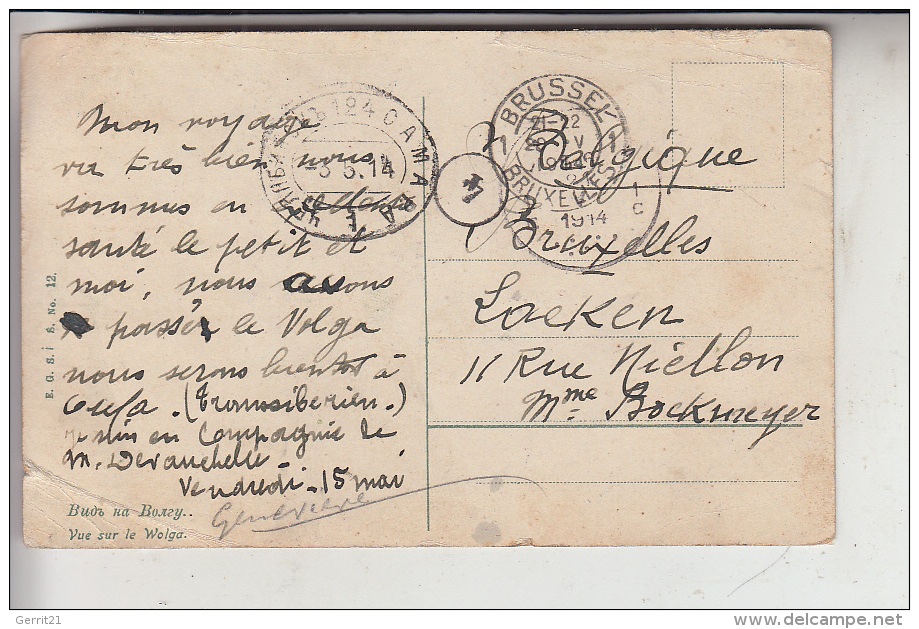 Mon voyage
va très bien nous
sommes en
santé le petit et
moi, nous avons
passer le Volga
nous serons bientôt à
Oufa. (Transsiberien.)
en Compagnie de
M. Devauchelle
Vendredi - 15 mai
Genevieve
Видъ на Волгу..
Vue sur le Wolga.
E. G. S. i S. No. 12.
124 САМАРА
-3 5.14
4
BRUSSEL
21-22
V
BRUXELLES
1914
Belgique
Bruxelles
Laeken
11 Rue Niellon
Mme Bockmeyer
Gerrit21
www.delcampe.net